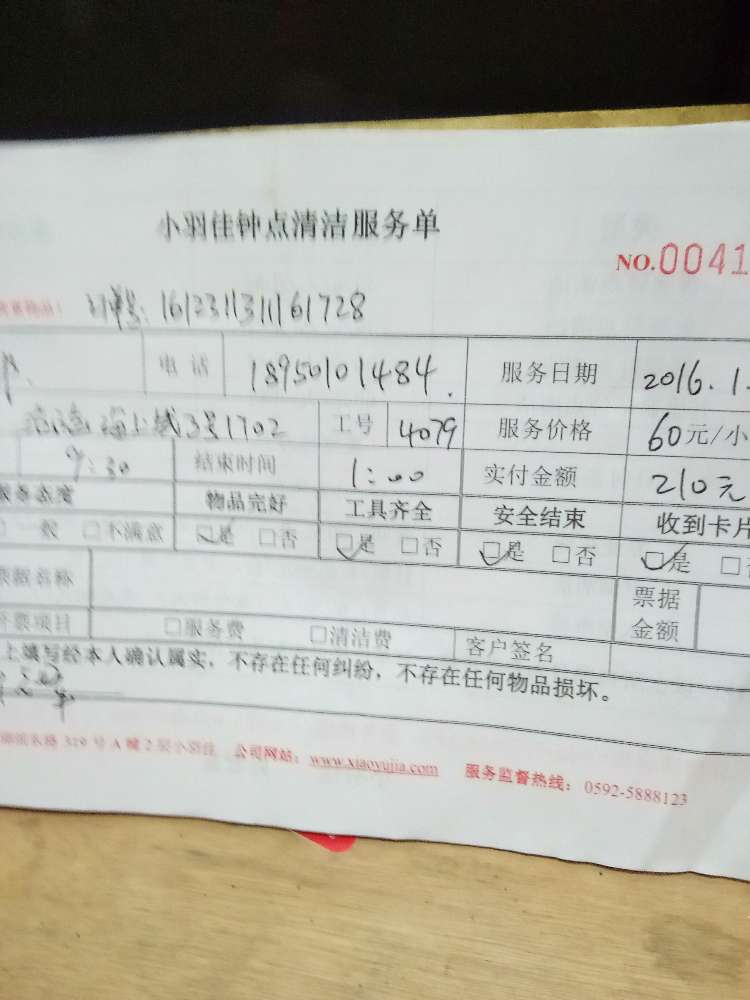 小羽佳钟点清洁服务单
NO.0041
订单号: 161231131161728
电话 18950101484. 服务日期 2016.1
海上城3号1702 工号 4079 服务价格 60元/小
9:30 结束时间 1:00 实付金额 210元
服务态度 物品完好 工具齐全 安全结束 收到卡片
□一般 □不满意 □是 □否 □是 □否 □是 □否 □是 □
票据名称 票据金额
开票项目 □服务费 □清洁费 客户签名
上填写经本人确认属实，不存在任何纠纷，不存在任何物品损坏。
319号A幢2层小羽佳 公司网站：www.xiaoyujia.com 服务监督热线：0592-5888123